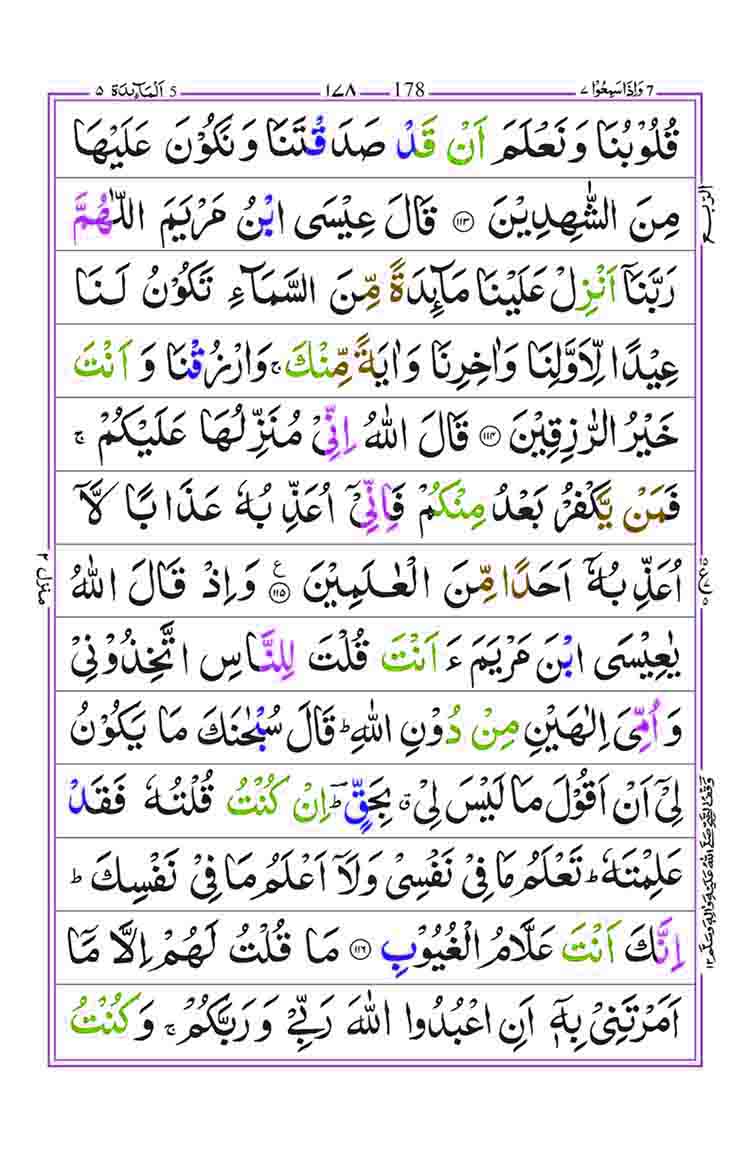 7 وَاِذَا سَمِعُوْا ٧ 178 ١٧٨ 5 اَلْمَآئِدَة ٥
قُلُوْبُنَا وَ نَعْلَمَ اَنْ قَدْ صَدَقْتَنَا وَ نَكُوْنَ عَلَيْهَا
مِنَ الشّٰهِدِيْنَ ١١٣ قَالَ عِيْسَى ابْنُ مَرْيَمَ اللّٰهُمَّ
الربع
رَبَّنَاۤ اَنْزِلْ عَلَيْنَا مَآئِدَةً مِّنَ السَّمَآءِ تَكُوْنُ لَنَا
عِيْدًا لِّاَوَّلِنَا وَ اٰخِرِنَا وَ اٰيَةً مِّنْكَ ۚ وَ ارْزُقْنَا وَ اَنْتَ
خَيْرُ الرّٰزِقِيْنَ ١١٤ قَالَ اللّٰهُ اِنِّيْ مُنَزِّلُهَا عَلَيْكُمْ ۚ
فَمَنْ يَّكْفُرْ بَعْدُ مِنْكُمْ فَاِنِّيْۤ اُعَذِّبُهٗ عَذَابًا لَّاۤ
اُعَذِّبُهٗۤ اَحَدًا مِّنَ الْعٰلَمِيْنَ ١١٥ ع وَ اِذْ قَالَ اللّٰهُ
منزل ٢
يٰعِيْسَى ابْنَ مَرْيَمَ ءَ اَنْتَ قُلْتَ لِلنَّاسِ اتَّخِذُوْنِيْ
وَ اُمِّيَ اِلٰهَيْنِ مِنْ دُوْنِ اللّٰهِ ؕ قَالَ سُبْحٰنَكَ مَا يَكُوْنُ
لِيْۤ اَنْ اَقُوْلَ مَا لَيْسَ لِيْ ۗ بِحَقٍّ ؕ اِنْ كُنْتُ قُلْتُهٗ فَقَدْ
عَلِمْتَهٗ ؕ تَعْلَمُ مَا فِيْ نَفْسِيْ وَ لَاۤ اَعْلَمُ مَا فِيْ نَفْسِكَ ؕ
اِنَّكَ اَنْتَ عَلَّامُ الْغُيُوْبِ ١١٦ مَا قُلْتُ لَهُمْ اِلَّا مَاۤ
اَمَرْتَنِيْ بِهٖۤ اَنِ اعْبُدُوا اللّٰهَ رَبِّيْ وَ رَبَّكُمْ ۚ وَ كُنْتُ